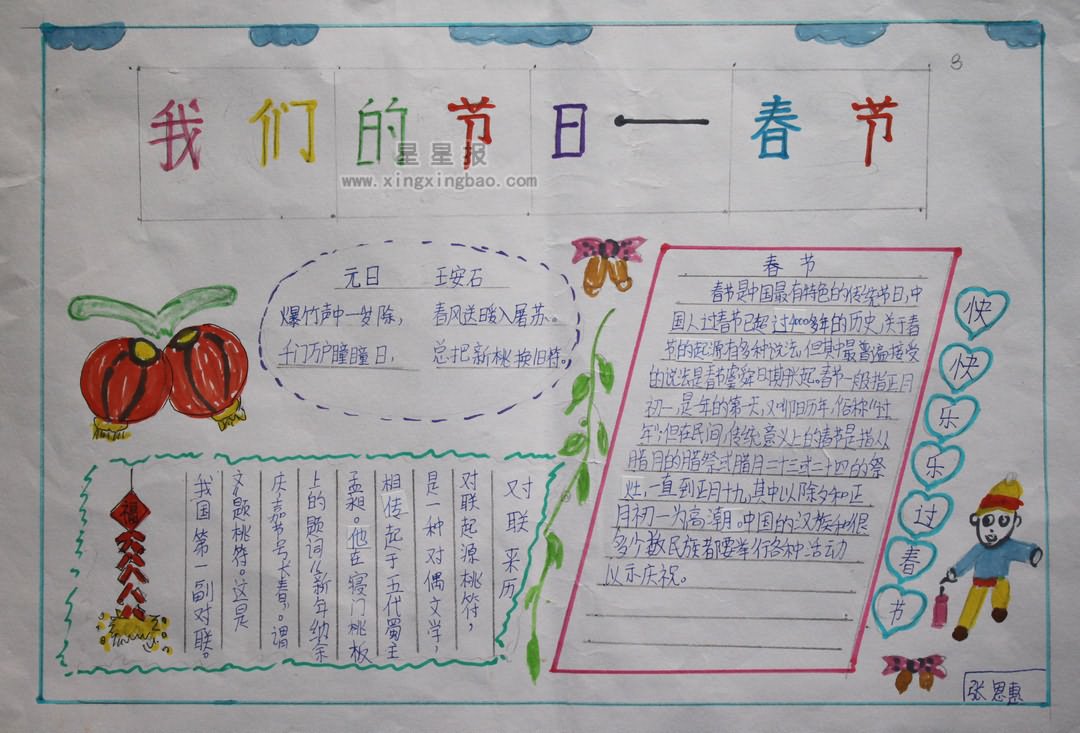 8
我们的节日——春节
星星报
www.xingxingbao.com
元日 王安石
爆竹声中一岁除, 春风送暖入屠苏。
千门万户曈曈日, 总把新桃换旧符。
春节
春节是中国最有特色的传统节日,中
国人过春节已超过4000多年的历史,关于春
节的起源有多种说法,但其中最普遍接受
的说法是春节虞舜日期兴起。春节一般指正月
初一,是一年的第一天,又叫阳历年,俗称“过
年”;但在民间,传统意义上的春节是指从
腊月的腊祭式腊月二十三或二十四的祭
灶,一直到正月十九,其中以除夕和正
月初一为高潮。中国的汉族和很
多少数民族都要举行各种活动
以示庆祝。
快
快
乐
乐
过
春
节
对联来历
对联起源桃符,
是一种对偶文学,
相传起于五代蜀主
孟昶。他在寝门桃板
上的题词《新年纳余
庆,嘉节号长春》。谓
文《题桃符。这是
我国第一副对联。
福
张恩惠